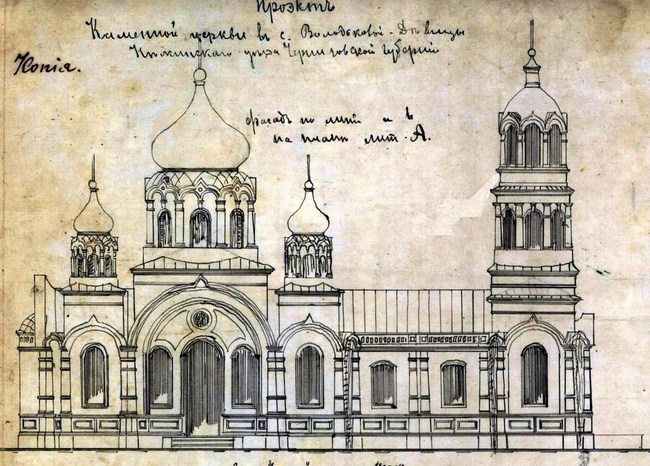 Проэктъ
Каменной церкви въ с. Володьковой-Дѣвицы
уѣзда Черниговской губерніи
Копія.
фасадъ по лит
на планѣ лит. А.